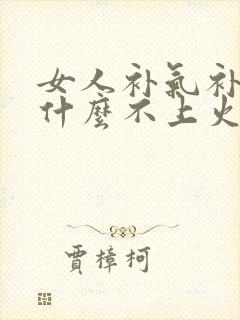 女人补氣补
什麼不上火
賈樟柯